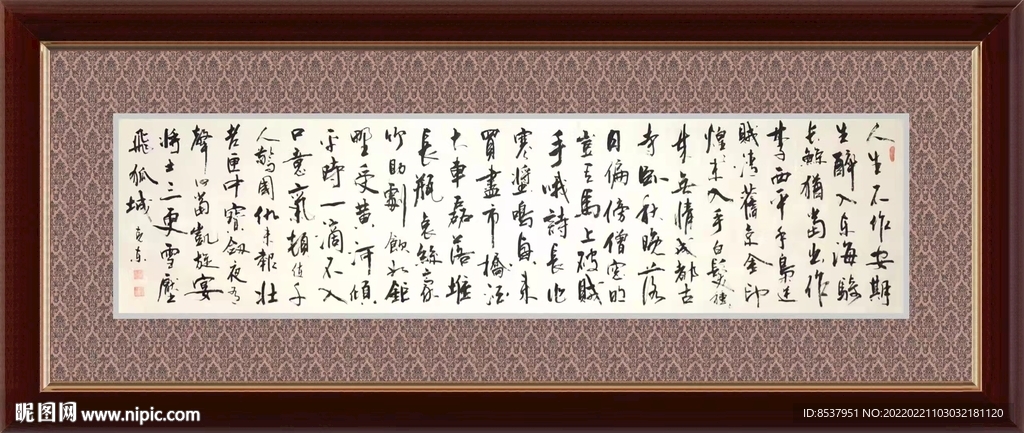 人生不作安期
生醉入东海騎
長鯨猶當出作
李西平手梟逆
賊清舊京金印
煌々未入手白髮種々
来無情成都古
寺卧秋晚落
日偏傍僧窗明
豈其馬上破賊
手哦詩長作
寒螿鳴興来
買盡市橋酒
大車磊落堆
長瓶哀絲豪
竹助劇飲如鉅
野受黄河傾
平時一滴不入
口意氣頓使千
人驚國仇未報壯
士老匣中寶劍夜有
聲何當凱旋宴
將士三更雪壓
飛狐城
昵图网 www.nipic.com
ID:8537951 NO:20220221103032181120